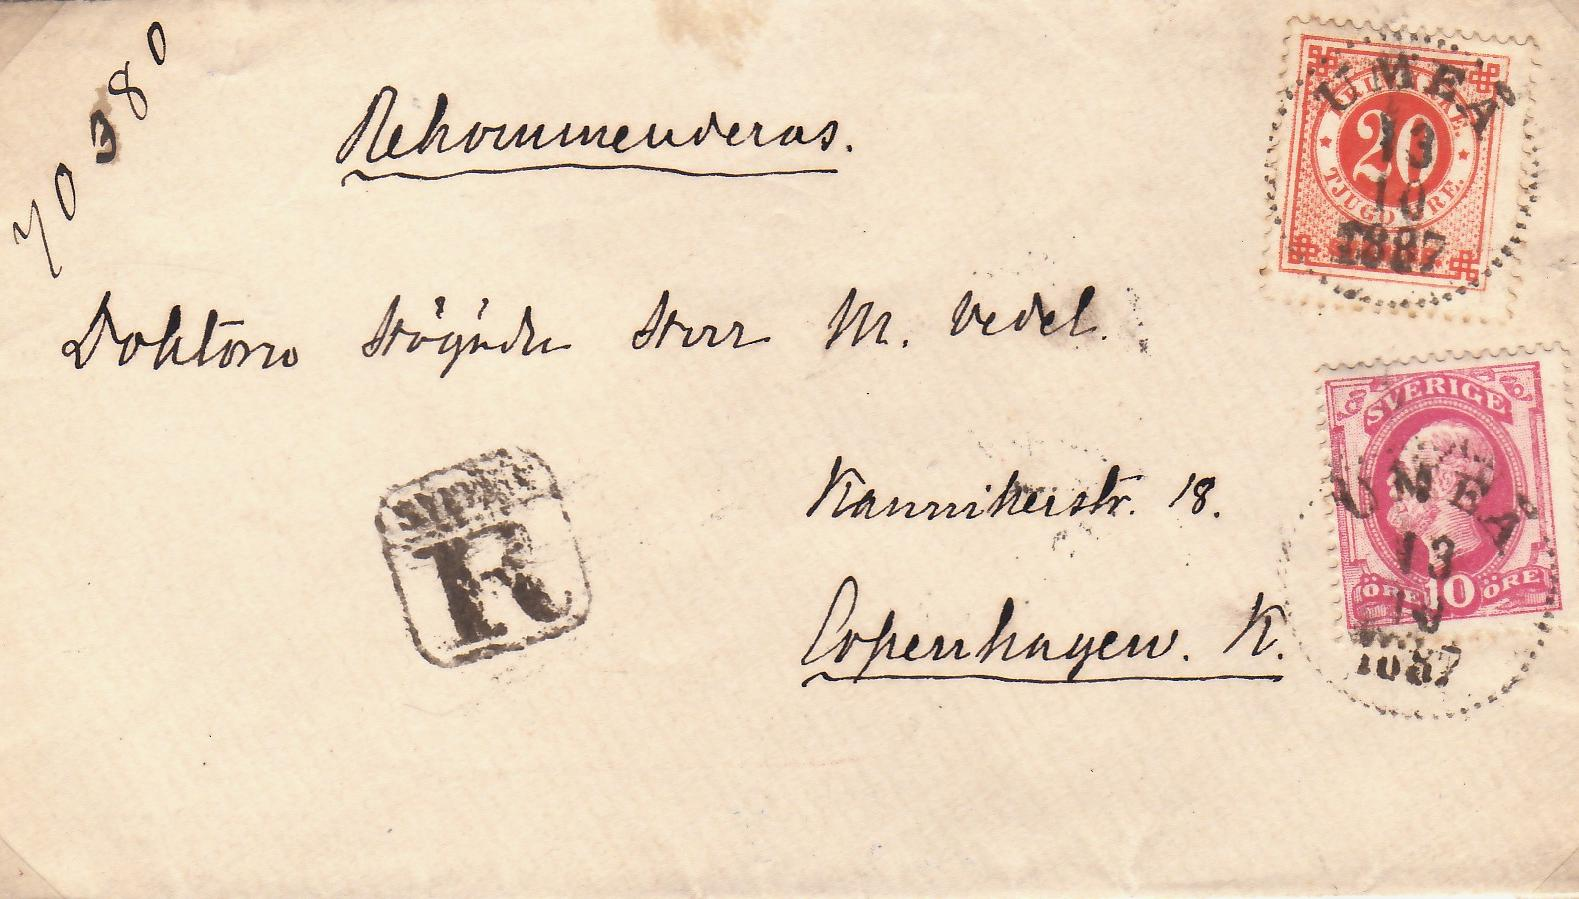 70380
Rekommenderas.
Doktorn Högädle Herr M. Vedel.
Kannikerstr. 18.
Copenhagen. K.
R
FRIMÄRKE.
20
TJUGO ÖRE.
UMEÅ
13
10
1887
SVERIGE
ÖRE 10 ÖRE
UMEÅ
13
10
1887